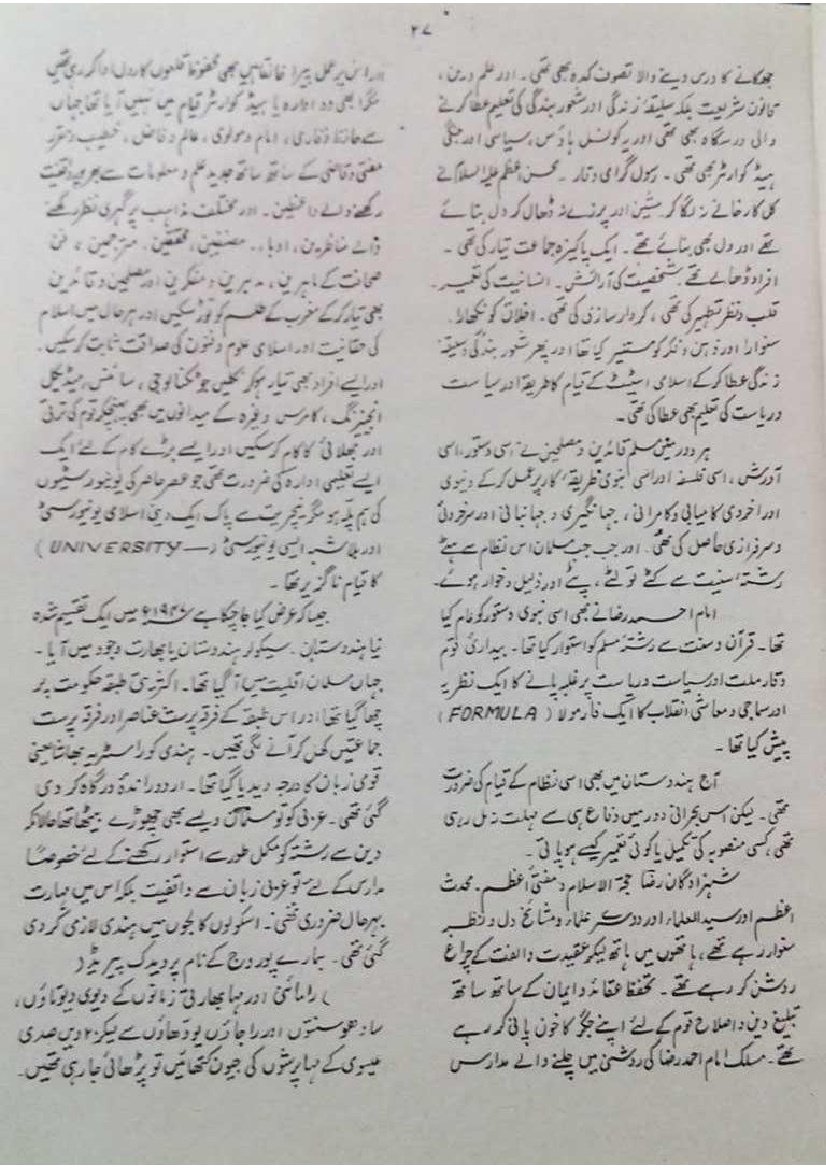 ۲۷
جھکانے کا درس دینے والا تصوف کدہ بھی تھی ۔ اور علم و دین ،
قانون شریعت بلکہ سلیقۂ زندگی اور شعور بندگی کی تعلیم عطا کرنے
والی درسگاہ بھی تھی اور یہ کونسل ہاؤس ، سیاسی اور جنگی
ہیڈ کوارٹر بھی تھی ۔ رسول گرامی وقار ۔ محسن اعظم علیہ السلام نے
کل کارخانے نہ لگا کر مشین اور پرزے نہ ڈھال کر دل بنائے
تھے اور دل بھی بنائے تھے ۔ ایک پاکیزہ جماعت تیار کی تھی ۔
افراد ڈھالے تھے شخصیت کی آرائش ۔ انسانیت کی تعمیر ۔
قلب و نظر تطہیر کی تھی ، کردار سازی کی تھی ۔ اخلاق کو نکھارا ۔
سنوارا اور ذہن و فکر کو مستنیر کیا تھا اور پھر شعور بندگی و سلیقۂ
زندگی عطا کر کے اسلامی اسٹیٹ کے قیام کا طریقہ اور سیاست
و ریاست کی تعلیم بھی عطا کی تھی ۔
ہر دور میں مسلم قائدین و مصلحین نے اسی دستور ، اسی
آدرش ، اسی فلسفہ اور اسی نبوی طریقۂ کار پر عمل کر کے دنیوی
اور اخروی کامیابی و کامرانی ، جہانگیری و جہانبانی اور سرخروئی
و سرفرازی حاصل کی تھی ۔ اور جب جب مسلمان اس نظام سے ہٹے
رشتۂ اسنیت سے کٹے ٹوٹے ، پٹے اور ذلیل و خوار ہوئے ۔
امام احمد رضا نے بھی اسی نبوی دستور کو عام کیا
تھا ۔ قرآن و سنت سے رشتۂ مسلم کو استوار کیا تھا ۔ بیداری قوم
وقار ملت اور سیاست و ریاست پر غلبہ پانے کا ایک نظریہ
اور سماجی و معاشی انقلاب کا ایک فارمولا ( FORMULA )
پیش کیا تھا ۔
آج ہندوستان میں بھی اسی نظام کے قیام کی ضرورت
تھی ۔ لیکن اس بحرانی دور میں دفاع ہی سے مہلت نہ مل رہی
تھی ، کسی منصوبہ کی تکمیل یا کوئی تعمیر کیسے ہو پاتی ۔
شہزادگان رضا حجۃ الاسلام و مفتی اعظم ۔ محدث
اعظم اور سید العلماء اور دوسرے علماء و مشائخ دل و نظر
سنوار رہے تھے ، ہاتھوں میں ہاتھ لیکر عقیدت و الفت کے چراغ
روشن کر رہے تھے ۔ تحفظ عقائد و ایمان کے ساتھ ساتھ
تبلیغ دین و اصلاح قوم کے لئے اپنے جگر کا خون پانی کر رہے
تھے ۔ مسلک امام احمد رضا کی روشنی میں چلنے والے مدارس
اور اس پر عمل پیرا خانقاہیں بھی محفوظ قلعوں کا رول ادا کر رہی تھیں
مگر ابھی وہ ادارہ یا ہیڈ کوارٹر قیام میں نہیں آیا تھا جہاں
سے حافظ و قاری ، امام و مولوی ، عالم و فاضل ، خطیب و مقرر
مفتی و قاضی کے ساتھ ساتھ جدید علم و معلومات سے بھرپور واقفیت
رکھنے والے واعظین ۔ اور مختلف مذاہب پر گہری نظر رکھنے
والے مناظرین ، ادباء ، مصنفین ، محققین ، مترجمین ، فن
صحافت کے ماہرین ، مدبرین و مفکرین اور مصلحین و قائدین
بھی تیار کر کے مغرب کے طلسم کو توڑ سکیں اور ہر حال میں اسلام
کی حقانیت اور اسلامی علوم و فنون کی صداقت ثابت کر سکیں ۔
اور ایسے افراد بھی تیار ہو کر نکلیں جو ٹکنالوجی ، سائنس ، میڈیکل
انجینرنگ ، کامرس وغیرہ کے میدانوں میں بھی پہنچکر قوم کی ترقی
اور بھلائی کا کام کر سکیں اور ایسے بڑے کام کے لئے ایک
ایسے تعلیمی ادارہ کی ضرورت تھی جو عصر حاضر کی یونیورسٹیوں
کی ہم پلہ ہو مگر نیچریت سے پاک ایک دینی اسلامی یونیورسٹی
اور بلا شبہ ایسی یونیورسٹی ( UNIVERSITY — )
کا قیام ناگزیر تھا ۔
جیسا کہ عرض کیا جا چکا ہے ۱۹۴۷ء میں ایک تقسیم شدہ
نیا ہندوستان ۔ سیکولر ہندوستان یا بھارت وجود میں آیا ۔
جہاں مسلمان اقلیت میں آ گیا تھا ۔ اکثریتی طبقہ حکومت پر
چھا گیا تھا اور اس طبقہ کے فرقہ پرست عناصر اور فرقہ پرست
جماعتیں کھل کر آنے لگی تھیں ۔ ہندی کو راسٹریہ بھاشا یعنی
قومی زبان کا درجہ دیدیا گیا تھا ۔ اردو راندۂ درگاہ کر دی
گئی تھی ۔ عربی کو تو مسلمان ویسے بھی چھوڑے بیٹھا تھا حالانکہ
دین سے رشتہ کو مکمل طور سے استوار رکھنے کے لئے خصوصًا
مدارس کے لئے تو عربی زبان سے واقفیت بلکہ اس میں مہارت
بہر حال ضروری تھی ۔ اسکولوں کالجوں میں ہندی لازمی کر دی
گئی تھی ۔ ہمارے پوروج کے نام پر ویدک پیریڈ (
) رامائن اور مہا بھارتی زمانوں کے دیوی دیوتاؤں ،
سادھو سنتوں اور راجاؤں یودھاؤں سے لیکر ۲۰ ویں صدی
عیسوی کے مہاپرشوں کی جیون کتھائیں تو پڑھائی جا رہی تھیں ۔